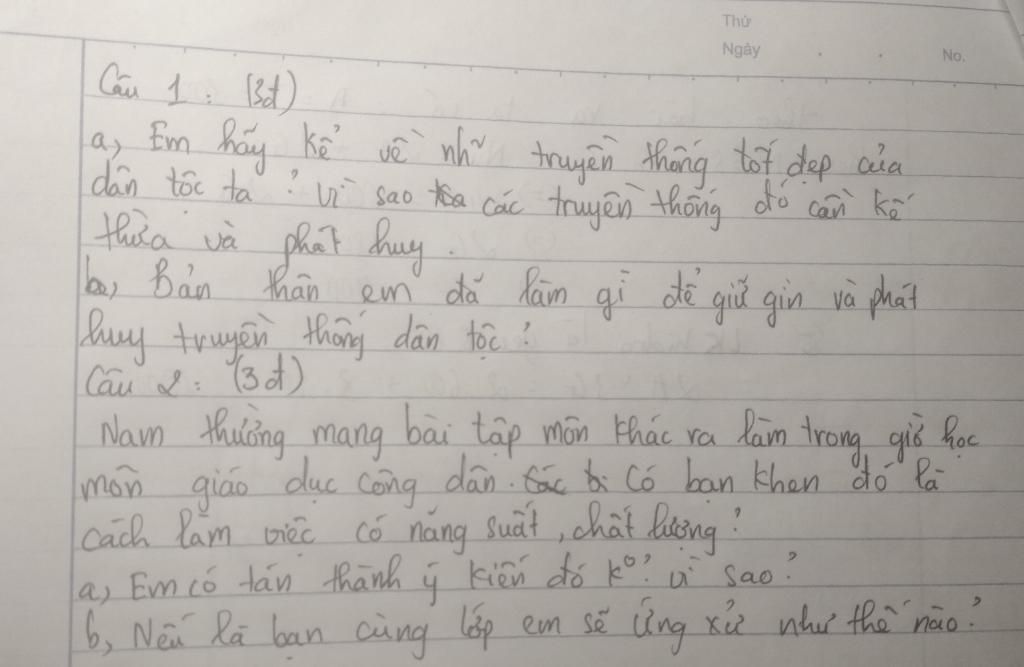 Thứ
Ngày . . No.
Câu 1 : (3đ)
a, Em hãy kể về nhữ truyền thống tốt đẹp của
dân tộc ta ? Vì sao các truyền thống đó cần kế
thừa và phát huy.
b, Bản thân em đã làm gì để giữ gìn và phát
huy truyền thống dân tộc ?
Câu 2 : (3đ)
Nam thường mang bài tập môn khác ra làm trong giờ học
môn giáo dục công dân. Có bạn khen đó là
cách làm việc có năng suất, chất lượng ?
a, Em có tán thành ý kiến đó k⁰ ? Vì sao ?
b, Nếu là bạn cùng lớp em sẽ ứng xử như thế nào ?